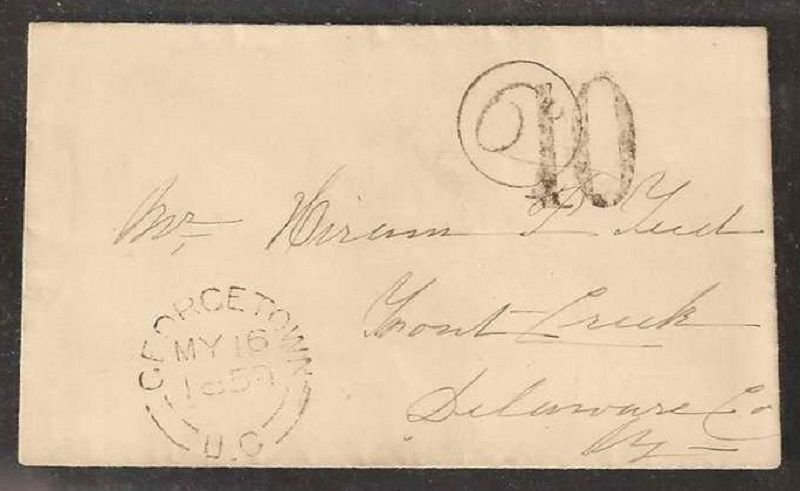 10
Mr, Hiram P Teed
Trout Creek
Delaware Co
NY
GEORGETOWN
MY 16
1857
U.C